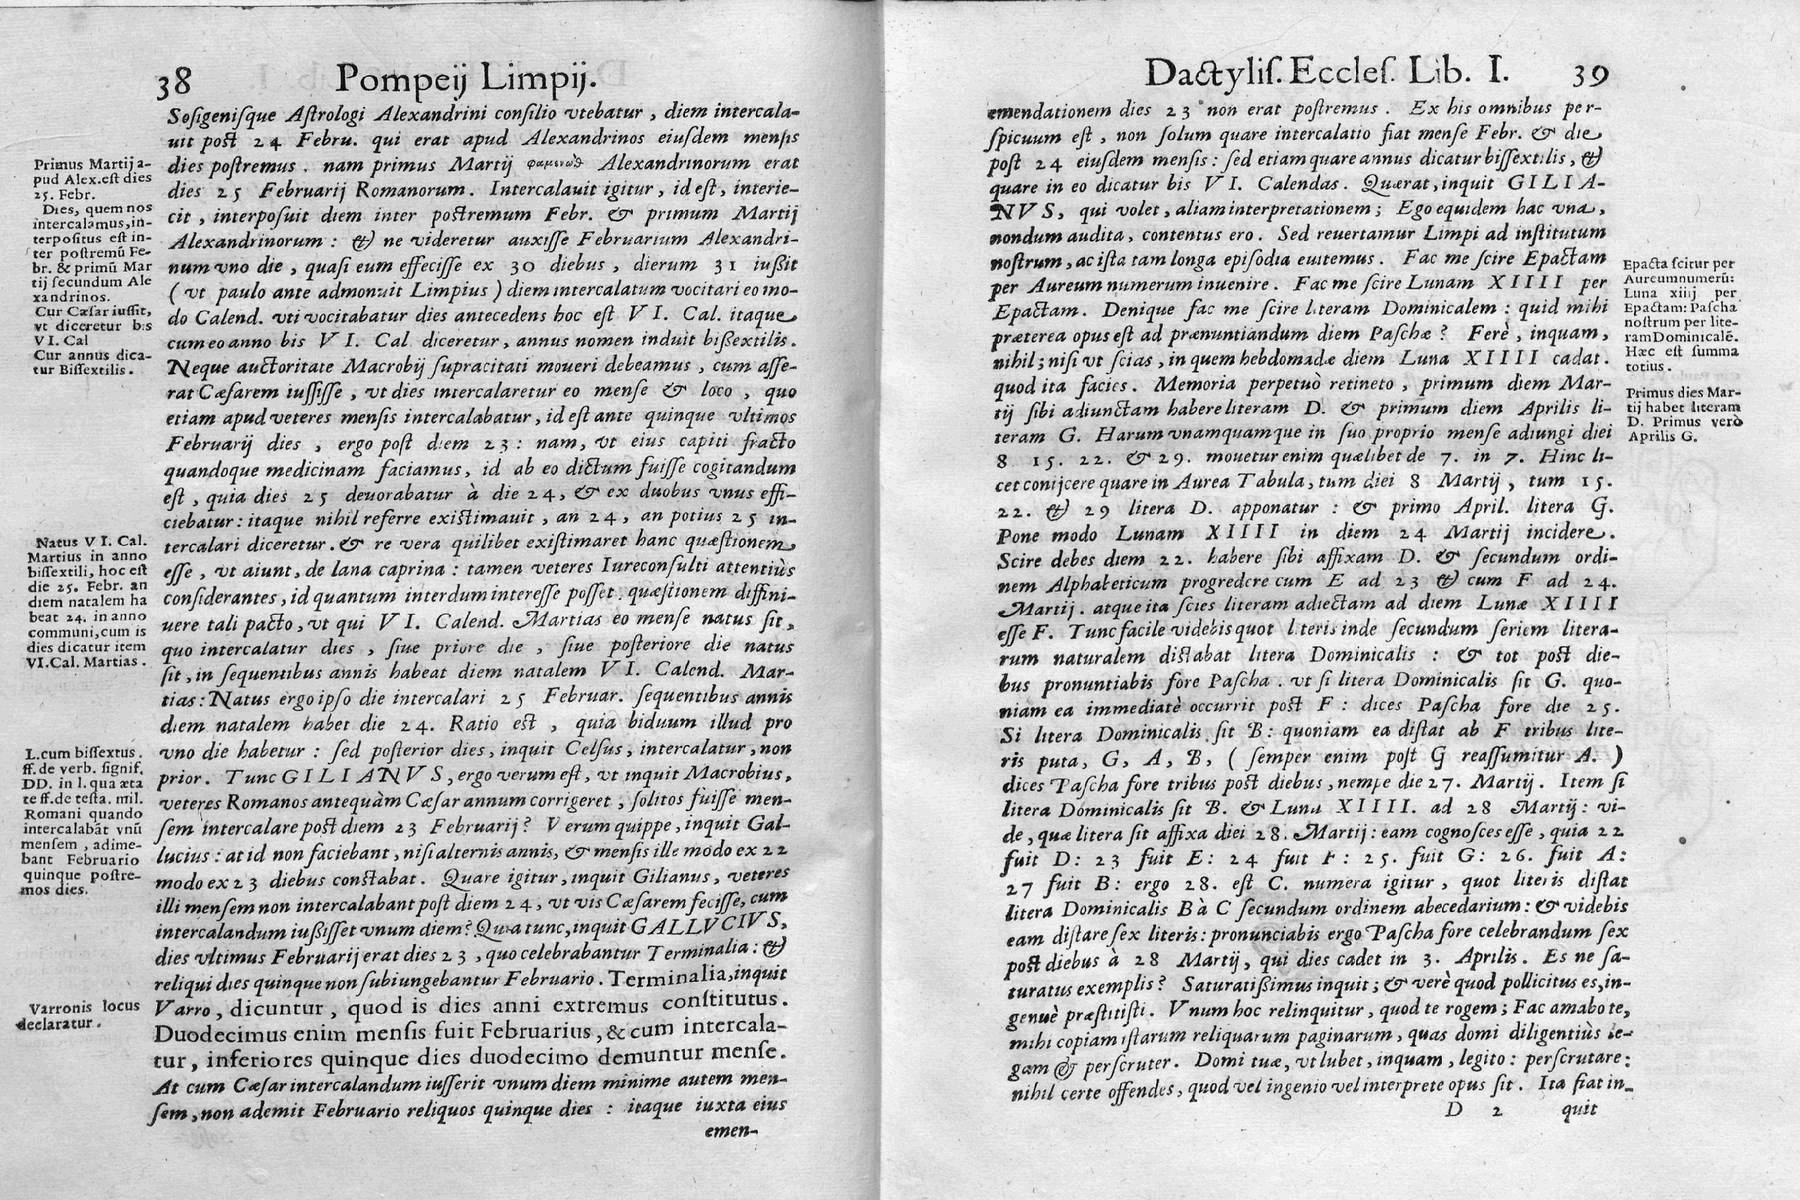 38 Pompeij Limpij.
Sosigenisque Astrologi Alexandrini consilio vtebatur, diem intercala-
uit post 24 Febru. qui erat apud Alexandrinos eiusdem mensis
dies postremus. nam primus Martij φαμενωθ Alexandrinorum erat
dies 25 Februarij Romanorum. Intercalauit igitur, id est, interie-
cit, interposuit diem inter postremum Febr. & primum Martij
Alexandrinorum: & ne videretur auxisse Februarium Alexandri-
num vno die, quasi eum effecisse ex 30 diebus, dierum 31 iußit
(vt paulo ante admonuit Limpius) diem intercalatum vocitari eo mo-
do Calend. vti vocitabatur dies antecedens hoc est VI. Cal. itaque
cum eo anno bis VI. Cal diceretur, annus nomen induit bißextilis.
Neque auctoritate Macrobij supracitati moueri debeamus, cum asse-
rat Cæsarem iussisse, vt dies intercalaretur eo mense & loco, quo
etiam apud veteres mensis intercalabatur, id est ante quinque vltimos
Februarij dies, ergo post diem 23: nam, vt eius capiti fracto
quandoque medicinam faciamus, id ab eo dictum fuisse cogitandum
est, quia dies 25 deuorabatur à die 24, & ex duobus vnus effi-
ciebatur: itaque nihil referre existimauit, an 24, an potius 25 in-
tercalari diceretur. & re vera quilibet existimaret hanc quæstionem
esse, vt aiunt, de lana caprina: tamen veteres Iureconsulti attentiùs
considerantes, id quantum interdum interesse posset, quæstionem diffini-
uere tali pacto, vt qui VI. Calend. Martias eo mense natus sit,
quo intercalatur dies, siue priore die, siue posteriore die natus
sit, in sequentibus annis habeat diem natalem VI. Calend. Mar-
tias: Natus ergo ipso die intercalari 25 Februar. sequentibus annis
diem natalem habet die 24. Ratio est, quia biduum illud pro
vno die habetur: sed posterior dies, inquit Celsus, intercalatur, non
prior. Tunc GILIANVS, ergo verum est, vt inquit Macrobius,
veteres Romanos antequàm Cæsar annum corrigeret, solitos fuisse men-
sem intercalare post diem 23 Februarij? Verum quippe, inquit Gal-
lucius: at id non faciebant, nisi alternis annis, & mensis ille modo ex 22
modo ex 23 diebus constabat. Quare igitur, inquit Gilianus, veteres
illi mensem non intercalabant post diem 24, vt vis Cæsarem fecisse, cum
intercalandum iußisset vnum diem? Quia tunc, inquit GALLVCIVS,
dies vltimus Februarij erat dies 23, quo celebrabantur Terminalia: &
reliqui dies quinque non subiungebantur Februario. Terminalia, inquit
Varro, dicuntur, quod is dies anni extremus constitutus.
Duodecimus enim mensis fuit Februarius, & cum intercala-
tur, inferiores quinque dies duodecimo demuntur mense.
At cum Cæsar intercalandum iusserit vnum diem minime autem men-
sem, non ademit Februario reliquos quinque dies: itaque iuxta eius
emen-
Primus Martij a-
pud Alex. est dies
25. Febr.
Dies, quem nos
intercalamus, in-
terpositus est in-
ter postremũ Fe-
br. & primũ Mar
tij secundum Ale
xandrinos.
Cur Cæsar iussit,
vt diceretur bis
VI. Cal
Cur annus dica-
tur Bissextilis.
Natus VI. Cal.
Martius in anno
bissextili, hoc est
die 25. Febr. an
diem natalem ha
beat 24. in anno
communi, cum is
dies dicatur item
VI. Cal. Martias.
L. cum bissextus.
ff. de verb. signif.
DD. in l. qua æta
te ff. de testa. mil.
Romani quando
intercalabãt vnũ
mensem, adime-
bant Februario
quinque postre-
mos dies.
Varronis locus
declaratur.
Dactylis. Eccles. Lib. I. 39
emendationem dies 23 non erat postremus. Ex his omnibus per-
spicuum est, non solum quare intercalatio fiat mense Febr. & die
post 24 eiusdem mensis: sed etiam quare annus dicatur bissextilis, &
quare in eo dicatur bis VI. Calendas. Quærat, inquit GILIA-
NVS, qui volet, aliam interpretationem; Ego equidem hac vna,
nondum audita, contentus ero. Sed reuertamur Limpi ad institutum
nostrum, ac ista tam longa episodia euitemus. Fac me scire Epactam
per Aureum numerum inuenire. Fac me scire Lunam XIIII per
Epactam. Denique fac me scire literam Dominicalem: quid mihi
præterea opus est ad prænuntiandum diem Paschæ? Ferè, inquam,
nihil; nisi vt scias, in quem hebdomadæ diem Luna XIIII cadat.
quod ita facies. Memoria perpetuò retineto, primum diem Mar-
tij sibi adiunctam habere literam D. & primum diem Aprilis li-
teram G. Harum vnamquamque in suo proprio mense adiungi diei
8 15. 22. & 29. mouetur enim quælibet de 7. in 7. Hinc li-
cet conijcere quare in Aurea Tabula, tum diei 8 Martij, tum 15.
22. & 29 litera D. apponatur: & primo April. litera G.
Pone modo Lunam XIIII in diem 24 Martij incidere.
Scire debes diem 22. habere sibi affixam D. & secundum ordi-
nem Alphabeticum progredere cum E ad 23 & cum F ad 24.
Martij. atque ita scies literam adiectam ad diem Lunæ XIIII
esse F. Tunc facile videbis quot literis inde secundum seriem litera-
rum naturalem distabat litera Dominicalis: & tot post die-
bus pronuntiabis fore Pascha. vt si litera Dominicalis sit G. quo-
niam ea immediatè occurrit post F: dices Pascha fore die 25.
Si litera Dominicalis sit B: quoniam ea distat ab F tribus lite-
ris puta, G, A, B, (semper enim post G reassumitur A.)
dices Pascha fore tribus post diebus, nempe die 27. Martij. Item si
litera Dominicalis sit B. & Luna XIIII. ad 28 Martij: vi-
de, quæ litera sit affixa diei 28. Martij: eam cognosces esse, quia 22
fuit D: 23 fuit E: 24 fuit F: 25. fuit G: 26. fuit A:
27 fuit B: ergo 28. est C. numera igitur, quot literis distat
litera Dominicalis B à C secundum ordinem abecedarium: & videbis
eam distare sex literis: pronunciabis ergo Pascha fore celebrandum sex
post diebus à 28 Martij, qui dies cadet in 3. Aprilis. Es ne sa-
turatus exemplis? Saturatißimus inquit; & verè quod pollicitus es, in-
genuè præstitisti. Vnum hoc relinquitur, quod te rogem; Fac amabo te,
mihi copiam istarum reliquarum paginarum, quas domi diligentiùs le-
gam & perscruter. Domi tuæ, vt lubet, inquam, legito: perscrutare:
nihil certe offendes, quod vel ingenio vel interprete opus sit. Ita fiat in-
D 2 quit
Epacta scitur per
Aureum numerũ:
Luna xiiij per
Epactam: Pascha
nostrum per lite-
ram Dominicalẽ.
Hæc est summa
totius.
Primus dies Mar-
tij habet literam
D. Primus verò
Aprilis G.